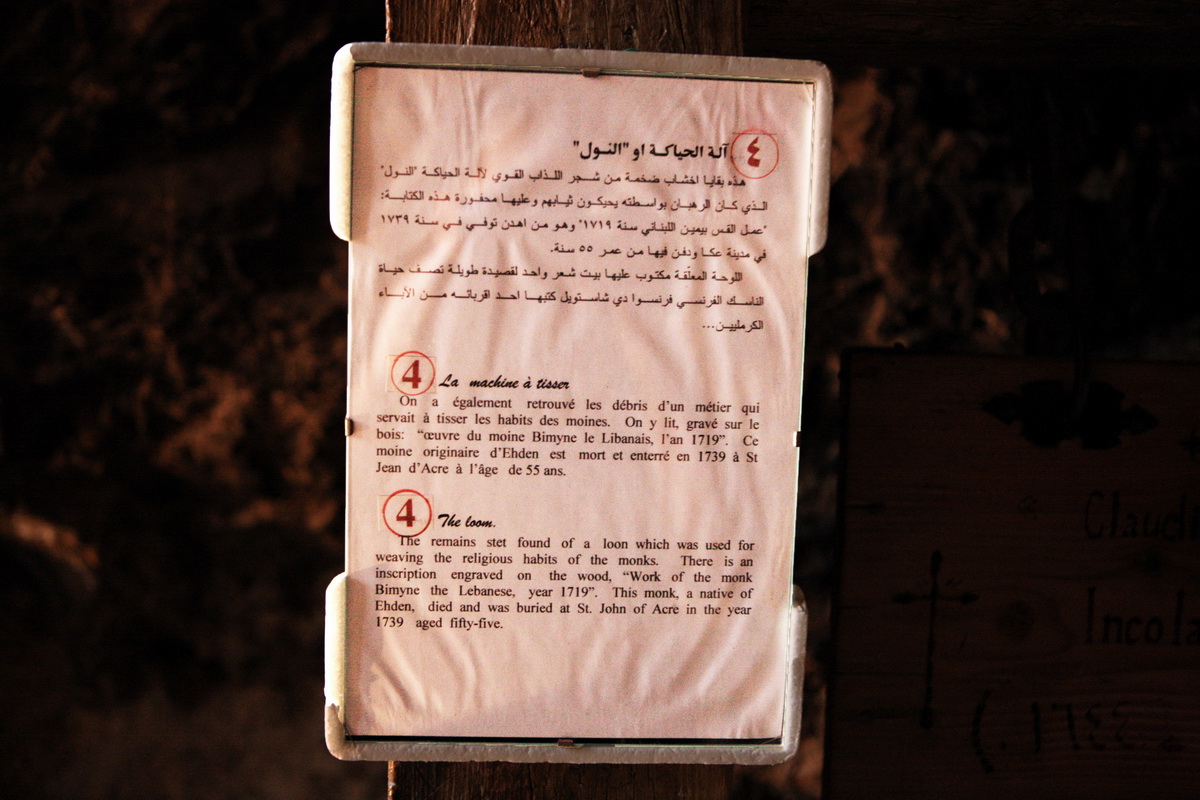 ٤ آلة الحياكة او "النول"
هذه بقايا اخشاب ضخمة من شجر اللذاب القوي لآلة الحياكة "النول"
الذي كان الرهبان بواسطته يحيكون ثيابهم وعليها محفورة هذه الكتابة:
"عمل القس بيمين اللبناني سنة ١٧١٩" وهو من اهدن توفي في سنة ١٧٣٩
في مدينة عكا ودفن فيها من عمر ٥٥ سنة.
اللوحة المعلّقة مكتوب عليها بيت شعر واحد لقصيدة طويلة تصف حياة
الناسك الفرنسي فرنسوا دي شاستويل كتبها احد اقربائه من الآباء
الكرمليين...
4 La machine à tisser
On a également retrouvé les débris d'un métier qui
servait à tisser les habits des moines. On y lit, gravé sur le
bois: “œuvre du moine Bimyne le Libanais, l'an 1719”. Ce
moine originaire d'Ehden est mort et enterré en 1739 à St
Jean d'Acre à l'âge de 55 ans.
4 The loom.
The remains stet found of a loon which was used for
weaving the religious habits of the monks. There is an
inscription engraved on the wood, “Work of the monk
Bimyne the Lebanese, year 1719”. This monk, a native of
Ehden, died and was buried at St. John of Acre in the year
1739 aged fifty-five.
Claudi
Incola